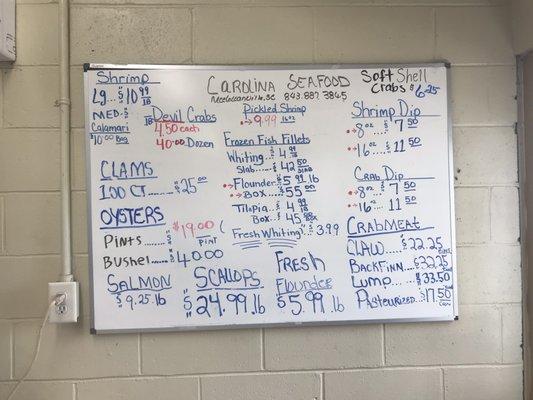 Shrimp
Lg...$10 99 lb
MED.$
Calamari
$10.00 Bag
CAROLINA SEAFOOD
McClellanville, SC 843.887.3845
Soft Shell
Crabs $6.25
Devil Crabs
4.50 each
40.00 Dozen
Pickled Shrimp
$9.99 16oz
Frozen Fish Fillets
Whiting..$4.99 lb
Slab...$42.50 SLAB
Flounder $5.99 lb
Box..$55.00
Tilapia..$4.99 lb
Box..$45.98
Fresh Whiting $3.99
Shrimp Dip
8oz..$7.50
16oz...$11.50
Crab Dip
8oz..$7.50
16oz..$11.50
CLAMS
100 CT......$25.00
OYSTERS
Pints......$19.00 PINT
Bushel...$40.00
SALMON
$9.25 lb
SCALLOPS
$24.99 lb
FRESH
Flounder
$5.99 lb
CRABMEAT
CLAW...$22.25
BACKFINN..$32.25
Lump....$33.50
Pasteurized..$17.50